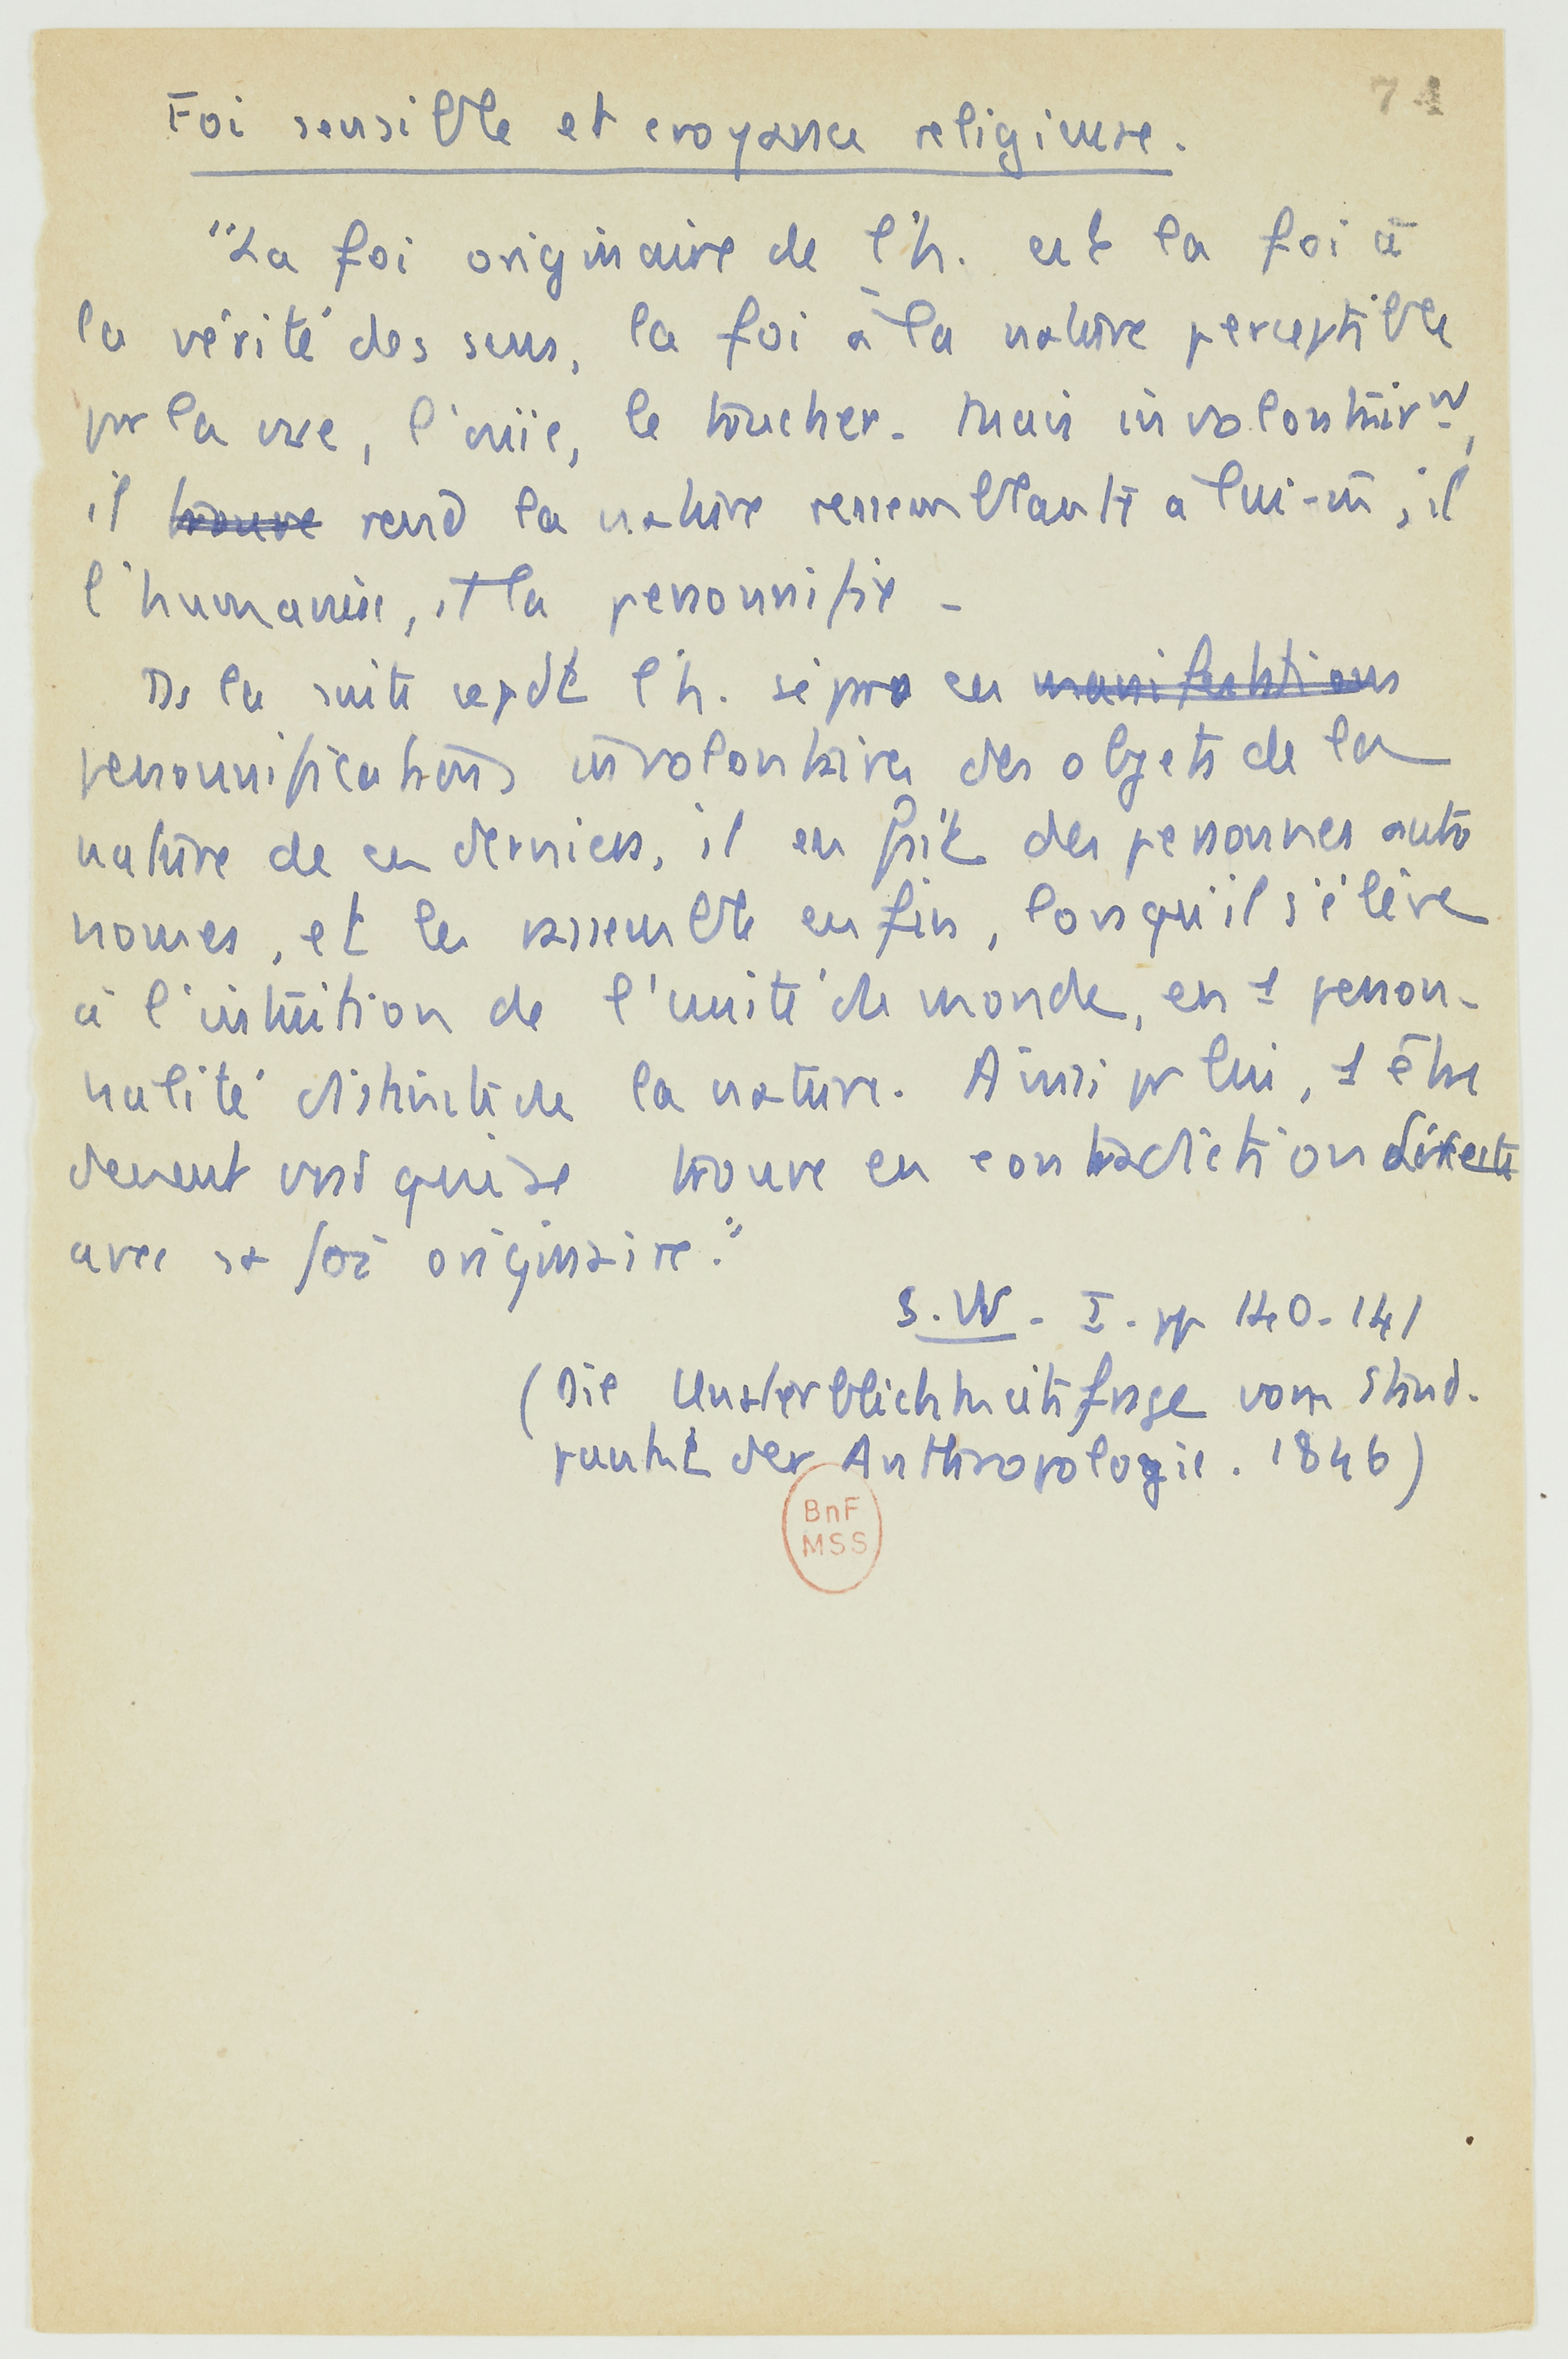 74
Foi sensible et croyance religieuse.
"La foi originaire de l'h. est la foi à
la vérité des sens, la foi à la nature perceptible
par la vue, l'ouïe, le toucher. Mais involontairmt,
il trouve rend la nature ressemblante a lui-m̄, il
l'humanise, et la personnifie -
Ds la suite cepdt l'h. sépare ces manifestations
personnifications involontaires des objets de la
nature de ces derniers, il en fait des personnes auto
nomes, et les rassemble enfin, lorsqu'il s'élève
à l'intuition de l'unité du monde, en 1 person-
nalité distincte de la nature. Ainsi pr lui, 1 être
devient vrai qui se trouve en contradiction directe
avec sa foi originaire."
S.W. I. pp 140-141
(Die Unsterblichkeitsfrage vom Stand.
punkt der Anthropologie. 1846)
BnF
MSS